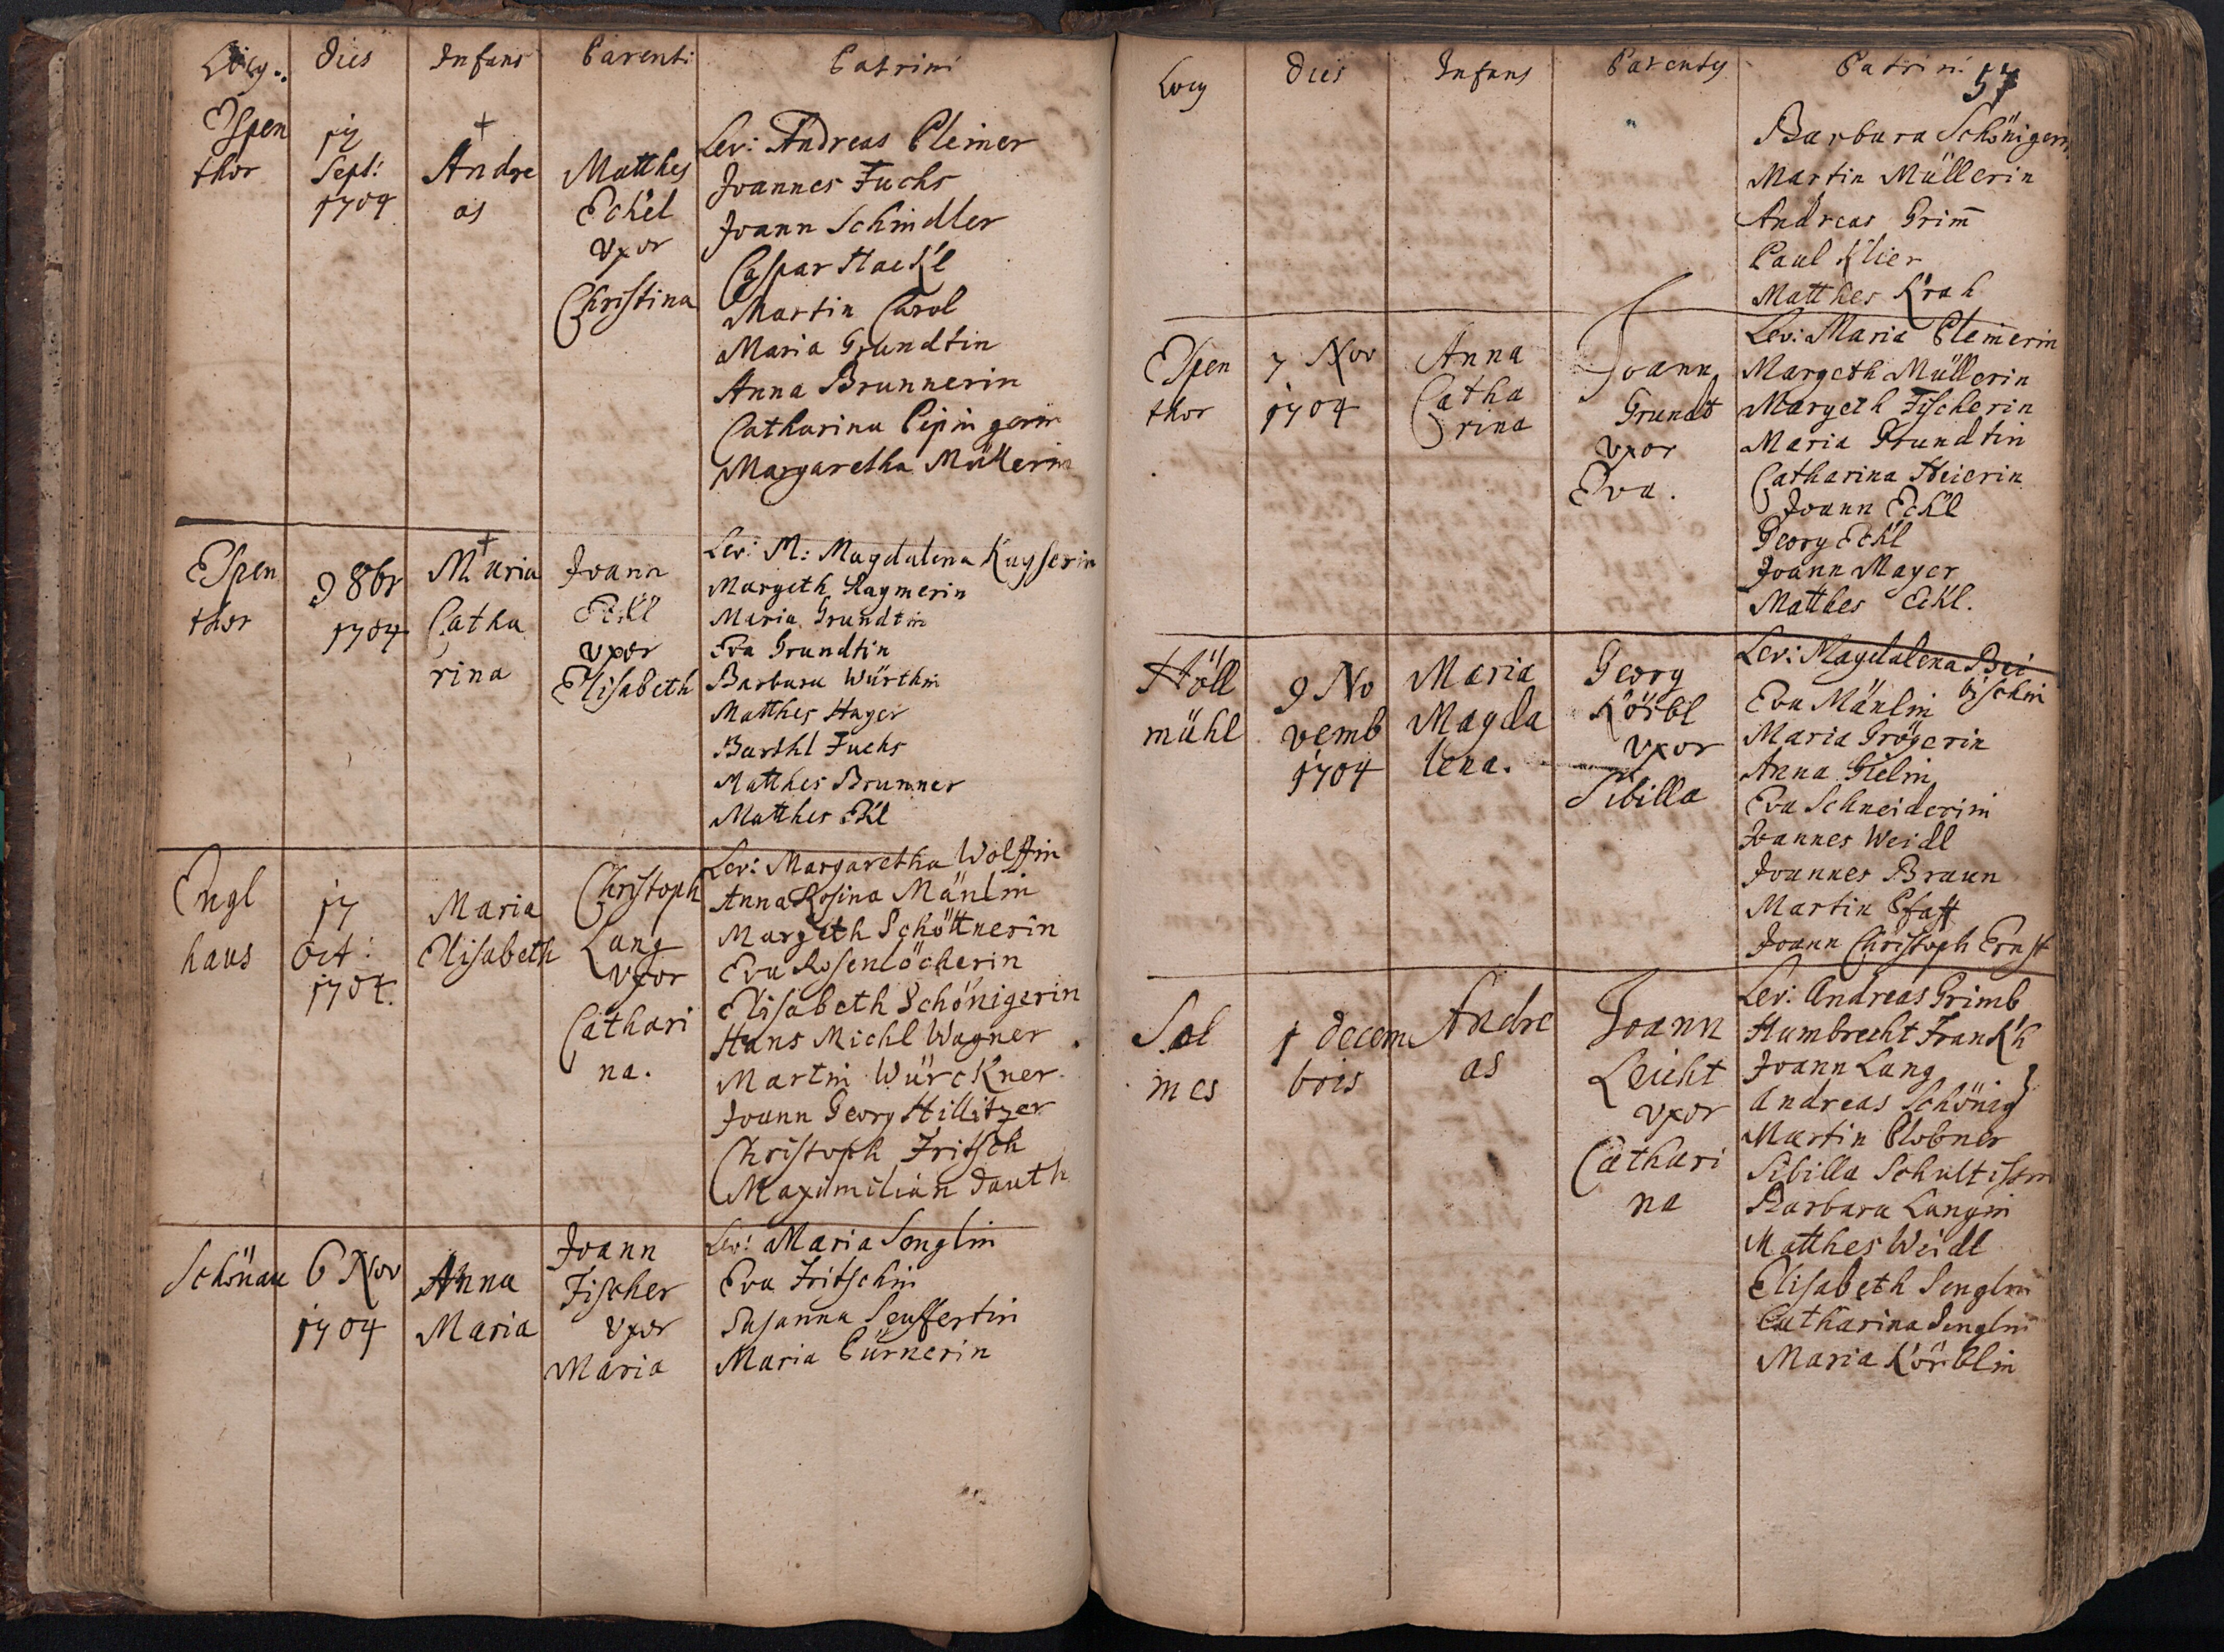 Locus
Dies
Infans
Parentes
Patrini
Espen
thor
17
Sept:
1704
Andre
as
Matthes
Eckel
vxor
Christina
Lev: Andreas Pleiner
Joannes Fuchs
Joann Schindler
Caspar Hackl
Martin Carol
Maria Grundtin
Anna Brunnerin
Catharina
Margaretha Müllerin
Espen
thor
9 8br
1704
Maria
Catha
rina
Joann
Eckl
vxor
Elisabeth
Lev: M: Magdalena Kaysserin
Margeth
Maria Grundtin
Eva Grundtin
Barbara Würthin
Matthes Hager
Barthl Fuchs
Matthes Brunner
Matthes Ekl
Engl
haus
17
Oct:
1704.
Maria
Elisabeth
Christoph
Lang
vxor
Cathari
na.
Lev: Margaretha Wolffin
Anna Rosina Mänlin
Margeth Schöttnerin
Eva Rosenlöcherin
Elisabeth Schönigerin
Hans Michl Wagner
Martin Würckner
Joann Georg Hillitzer
Christoph Fritsch
Maximilian Dauth
Schönau
6 Nov
1704
Anna
Maria
Joann
Fischer
vxor
Maria
Lev: Maria Senglin
Eva Fritschin
Susanna Seuffertin
Maria Pürnerin
Locus
Dies
Infans
Parentes
Patrini
57
Barbara Schönigerin
Martin Müllerin
Andreas Grim̄
Paul Klier
Matthes Krah
Espen
thor
7 Nov
1704
Anna
Catha
rina
Joann
Grundt
vxor
Eva.
Lev: Maria Pleinerin
Margeth Müllerin
Margeth Fischerin
Maria Grundtin
Catharina Heierin
Joann Eckl
Georg Eckl
Joann Mayer
Matthes Eckl.
Höll
mühl
9 No
vemb
1704
Maria
Magda
lena.
Georg
Körbl
vxor
Sibilla
Lev: Magdalena
Eva Mänlin
Maria Grögerin
Anna
Eva Schneiderin
Joannes Weidl
Joannes Braun
Martin Pfaff
Joann Christoph Ernst
Sol
mes
1 decem
bris
Andre
as
Joann
Leicht
vxor
Cathari
na
Lev: Andreas Grimb
Humbrecht Franckh
Joann Lang
Andreas Schönig
Martin Plobner
Sibilla
Barbara Langin
Matthes Weidl
Elisabeth Senglin
Catharina Senglin
Maria Körblin